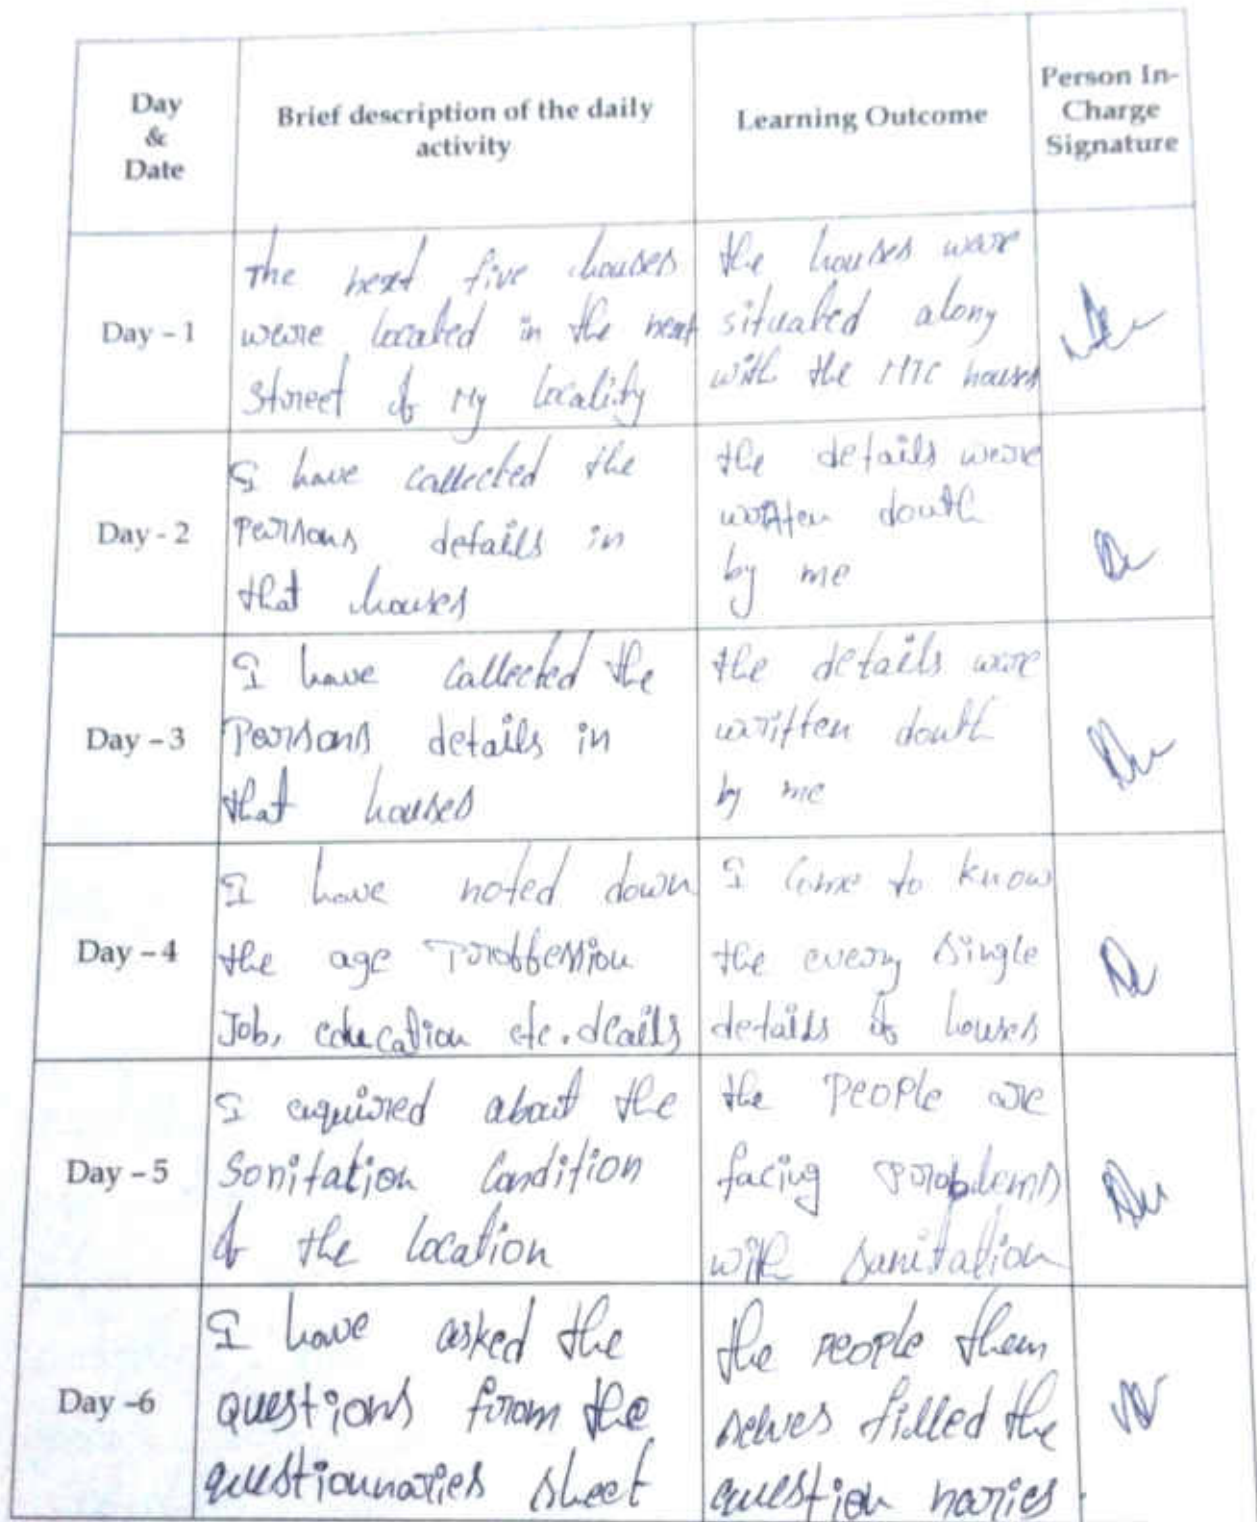 Day
&
Date
Brief description of the daily
activity
Learning Outcome
Person In-
Charge
Signature
Day - 1
The next five houses
were located in the next
street of My locality
the houses were
situated along
with the houses
Day - 2
I have collected the
Persons details in
that houses
the details were
written douth
by me
Day - 3
I have collected the
Persons details in
that houses
the details were
written douth
by me
Day - 4
I have noted down
the age Proffession
Job, education etc. deails
I come to know
the every single
details of houses
Day - 5
I enquired about the
Sonitation Condition
of the location
the People are
facing Problems
with sanitation
Day -6
I have asked the
questions from the
questionnaries sheet
the People them
selves filled the
question naries.